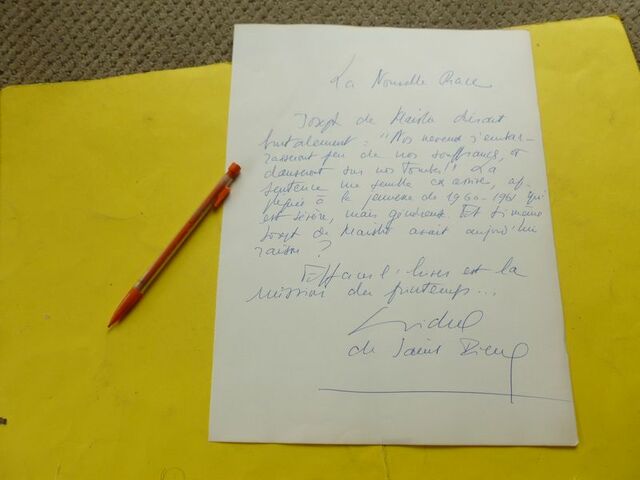 La Nouvelle Race
Joseph de Maistre disait
brutalement : "Nos neveux s'embar-
rasseront peu de nos souffrances, et
danseront sur nos tombes!" La
sentence me semble excessive, ap-
pliquée à la jeunesse de 1960-1961 qui
est sévère, mais généreuse. Et si même
Joseph de Maistre avait aujourd'hui
raison ?
Effacer l'hiver est la
mission du printemps...
de Saint Pierre